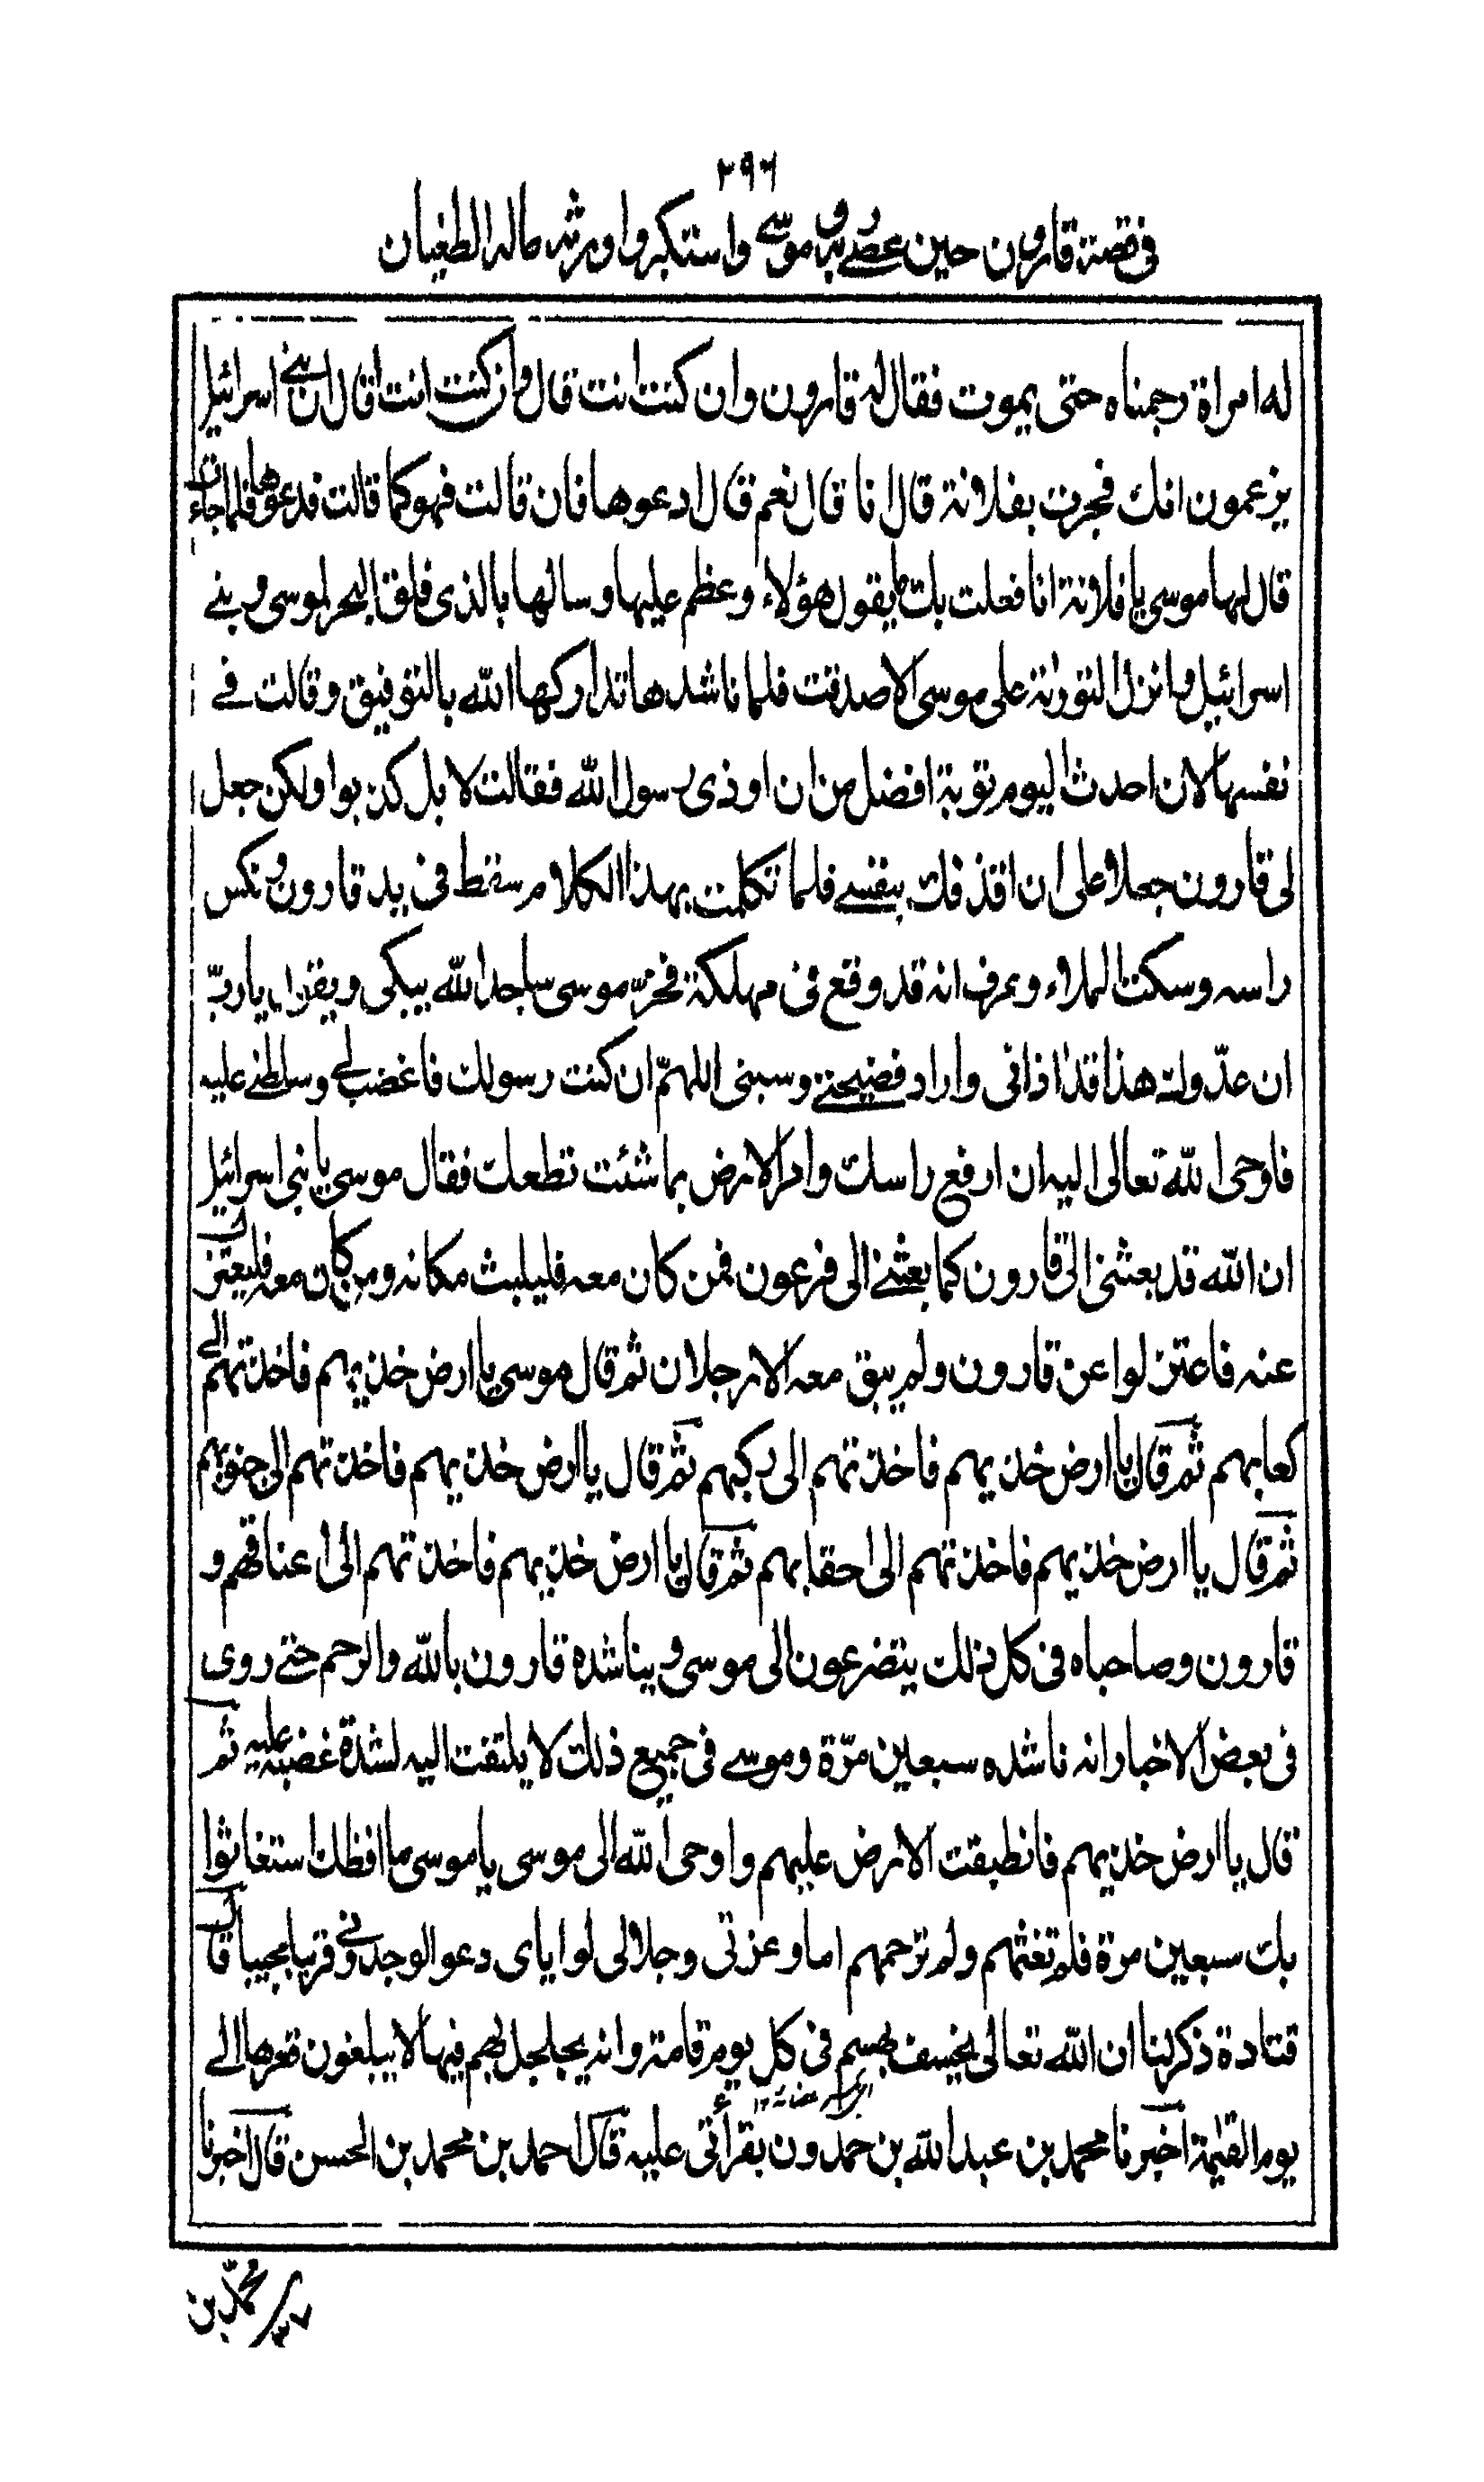 ٢٩٦
في قصة قارون حين عصى ربه وموسى واستكبر واورثه ماله الطغيان
له امراة رجمناه حتى يموت فقال له قارون وان كنت انت قال وان كنت انت انا قال ان بني اسرائيل
يزعمون انك فجرت بفلانة قال انا قال نعم قال ادعوها فان قالت فهو كما قالت فدعوها فلما جاءت
قال لها موسى يا فلانة انا فعلت بك ما يقول هؤلاء وعظم عليها وسالها بالذى فلق البحر لموسى وبنى
اسرائيل وانزل التورٰىة على موسى الا صدقت فلما ناشدها تداركها الله بالتوفيق وقالت في
نفسها لان احدث اليوم توبة افضل من ان اوذى رسول الله فقالت لا بل كذبوا ولكن جعل
لى قارون جعلا على ان اقذفك بنفسي فلما تكلمت بهذا الكلام سقط في يد قارون ونكس
راسه وسكت الملاء وعرف انه قد وقع في مهلكة فخرّ موسى ساجدا لله يبكى ويقول يا ربّ
ان عدّولك هذا قد اذانى واراد فضيحتي وسبنى اللهمّ ان كنت رسولك فاغضب لي وسلطني عليه
فاوحى الله تعالى اليه ان ارفع راسك وامر الارض بما شئت تطعك فقال موسى يا بنى اسرائيل
ان الله قد بعثنى الى قارون كما بعثني الى فرعون فمن كان معه فليلبث مكانه ومن كان معى فليعتزل
عنه فاعتزلوا عن قارون ولم يبق معه الا رجلان ثم قال موسى يا ارض خذيهم فاخذتهم الى
كعابهم ثم قال يا ارض خذيهم فاخذتهم الى ركبهم ثم قال يا ارض خذيهم فاخذتهم الى جنوبهم
ثم قال يا ارض خذيهم فاخذتهم الى احقابهم ثم قال يا ارض خذيهم فاخذتهم الى اعناقهم و
قارون وصاحباه فى كل ذلك يتضرعون الى موسى ويناشده قارون بالله والرحم حتى روى
فى بعض الاخبار انه ناشده سبعين مرّة وموسى فى جميع ذلك لا يلتفت اليه لشدة غضبه عليه ثم
قال يا ارض خذيهم فانطبقت الارض عليهم واوحى الله الى موسى يا موسى ما افظك استغاثوا
بك سبعين مرة فلم تغثهم ولم ترحمهم اما وعزتى وجلالى لو اياى دعوا لوجدونى قريبا مجيبا قال
قتادة ذكر لنا ان الله تعالى يخسف بهم فى كل يوم قامة وانه يجلجل بهم فيها لا يبلغون قعرها الى
يوم القيٰمة اخبرنا محمد بن عبد الله بن حمدون بقراءتى عليه قال احمد بن محمد بن الحسن قال اخبرنا
محمّد بن